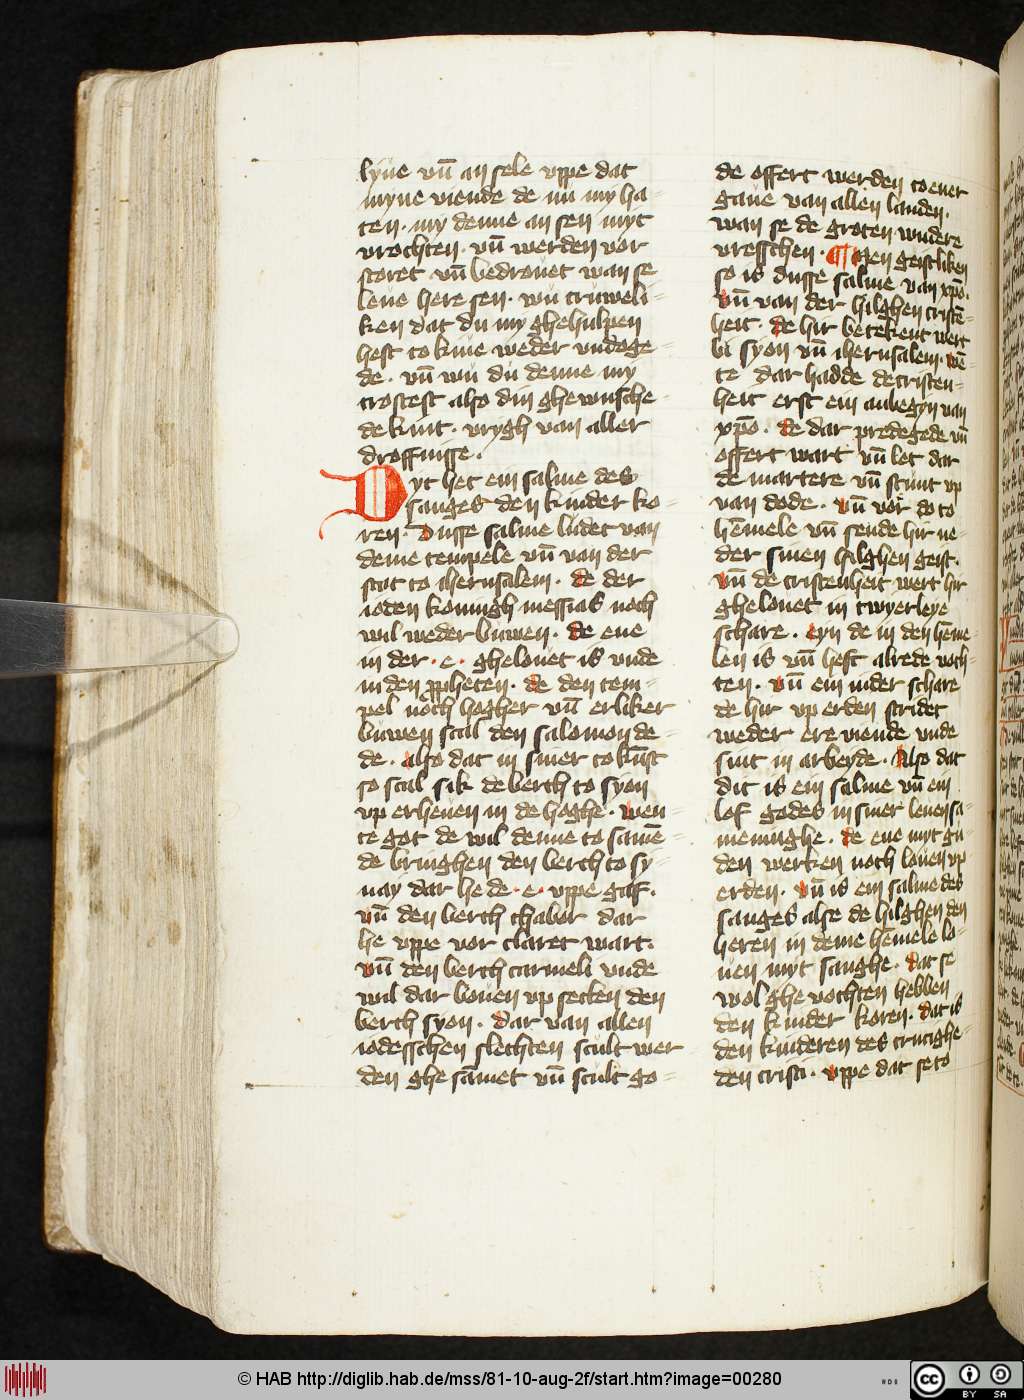 lyue vn̄ an sele vppe dat
myne viende de nu my ha-
ten. my denne an sen myt
vrochten. vn̄ werden vor
storet vn̄ bedrouet wan se
leue here sen. wu truweli-
ken dat du my ghehulpen
hest to kiue weder vndoge-
de. vn̄ wu du denne my
trostest also din ghewusche-
de kint. vrygh van aller
droffnisse.
Dyt het ein salme des
sanges den kinder ko-
ren. Dusse salme ludet van
deme tempele vn̄ van der
stat to iherusalem. de der
ioden koningh messias noch
wil weder buwen. de eue
in der .e. ghelouet is vnde
in den ppheten. de den tem-
pel noch hogher vn̄ erliker
buwen scal den salomon de-
de. also dat in siner tokūst
so scal sik de berch to syon
vp erheuen in de hoghe. wen-
te got de wil denne to samē-
de bringhen den berch to sy-
nay dar he de .e. vppe gaf.
vn̄ den berch thabor dar
he vppe vor claret wart.
vn̄ den berch carmeli vnde
wil dar bouen vp setten den
berch syon. dar van allen
iodesschen slechten scult wer
den ghe samet vn̄ scult go-
de offert werden to ener
gaue van allen landen.
wan se de groten wudere
vresschen. ¶ Men geistliken
so is dusse salme van xpo.
vn̄ van der hilghen cristē-
heit. de hir betekent wert
bi syon vn̄ iherusalem. wē-
te dar hadde de cristen-
heit erst ein anbegyn van
xpo. de dar predegede vn̄
offert wart vn̄ let dar
de martere vn̄ stunt vp
van dode. vn̄ vor do to
hēmele vn̄ sende hir ne-
der sinen hilghen geist.
vn̄ de cristenheit wert hir
ghelouet in twyerleye
schare. eyn de in den hēme-
len is vn̄ heft alrede voch-
ten. vn̄ ein inder schare
de hir vp erden stridet
weder ere viende vnde
sint in arbeyde. Also dat
dit is ein salme vn̄ ein
lof godes in siner leuen sa-
meninghe. de eue myt gu-
den werken noch louen vp
erden. vn̄ is ein salme des
sanges alse de hilghen den
heren in deme hēmele lo-
uen myt sanghe. dat se
wol ghe vochten hebben
den kinder koren. dat is
den kinderen des crucighe-
den cristi. vppe dat se to
© HAB http://diglib.hab.de/mss/81-10-aug-2f/start.htm?image=00280
cc BY SA